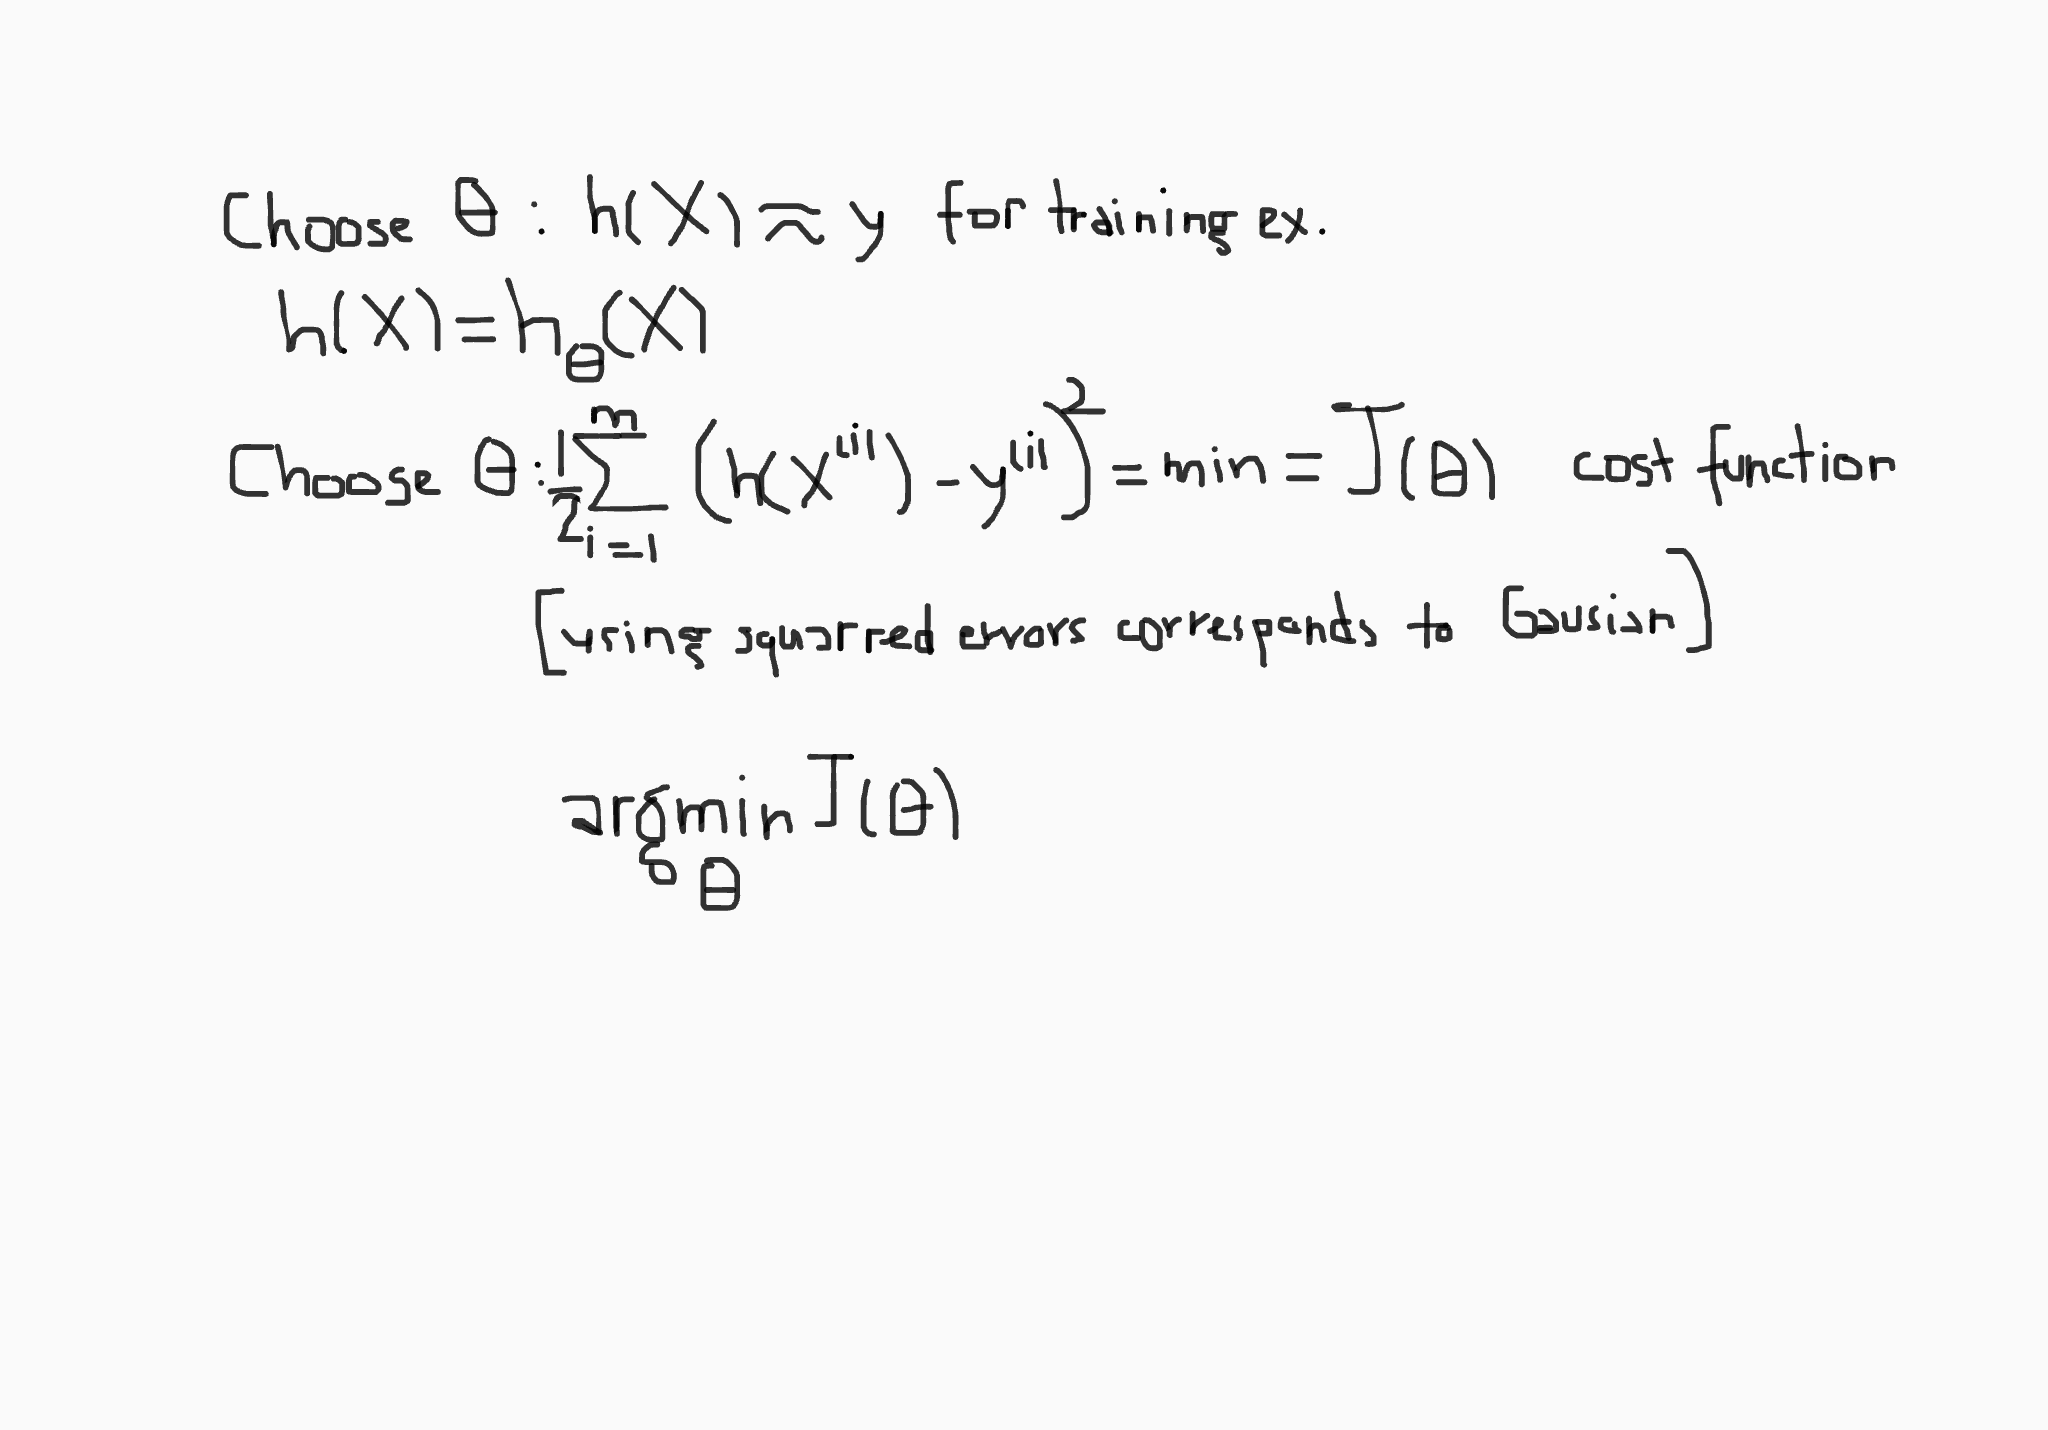 Choose θ : h(X) ≈ y for training ex.
h(X) = h_θ(X)
Choose θ : 1/2 Σ_{i=1}^{m} (h(X^{(i)}) - y^{(i)})^2 = min = J(θ) cost function
[using squarred errors correspands to Gausian]
argmin_θ J(θ)